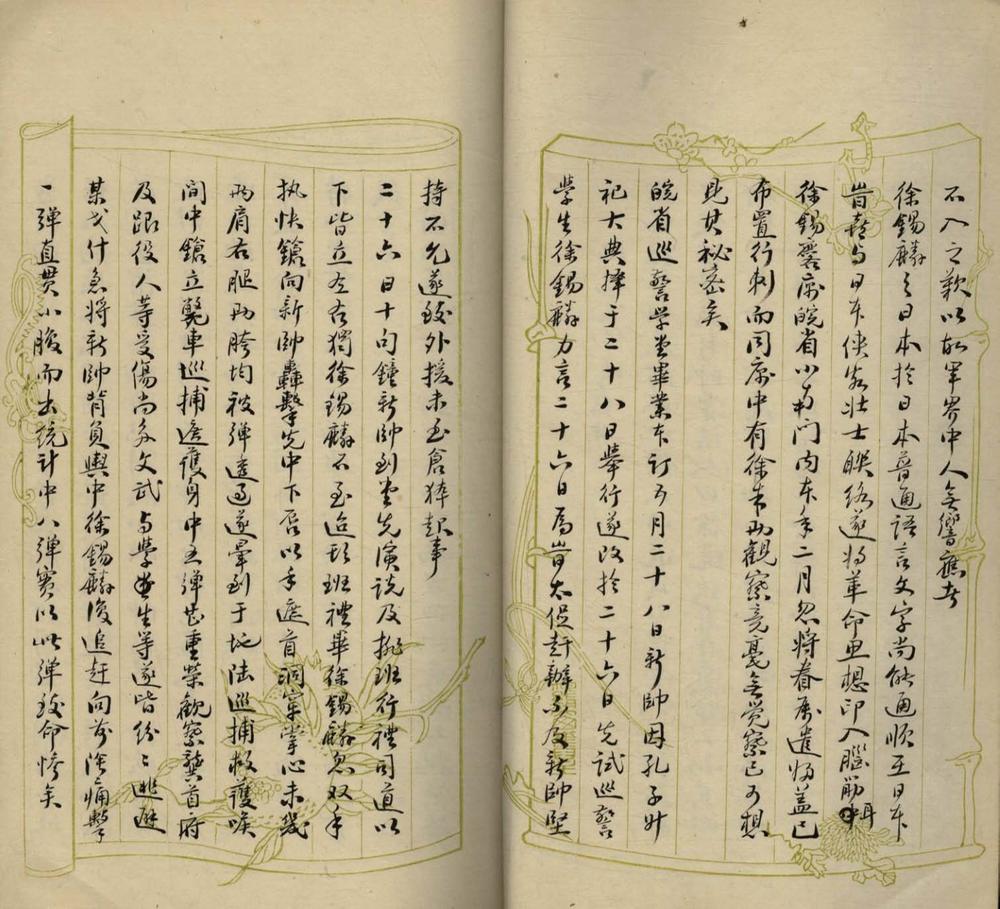 不入之歎以故軍界中人無響應者
徐錫麟之日本於日本普通語言文字尚能通順至日本
嘗喜与日本俠客壯士聯絡遂將革命思想印入腦筋中耳
徐錫麐寓皖省小南門內本年二月忽將眷屬遣歸蓋已
布置行刺而同席中有徐朱兩觀察竟憂無覺察已可想
見其秘密矣
皖省巡警学堂畢業本訂五月二十八日新帥因孔子升
祀大典擇于二十八日舉行遂改於二十六日先試巡警
學生徐錫麟力言二十六日為時太促趕辦不及新帥堅
持不允遂致外援未至倉猝起事
二十六日十句鐘新帥到堂先演說及排班行禮司道以
下皆立左右獨徐錫麟不至迨站班禮畢徐錫麟忽双手
执快鎗向新帥轟擊先中下唇以手遮首洞穿掌心未幾
兩肩右腿兩胯均被彈透過遂暈到于地陸巡捕救護喉
間中鎗立斃車巡捕遮護身中五彈甚重榮觀察龔首府
及跟役人等受傷尚多文武与學生等遂皆紛〻逃避
某戈什急將新帥背負輿中徐錫麟後追赶向前法痛擊
一彈直貫小腹而出統計中八彈實以此彈致命慘矣